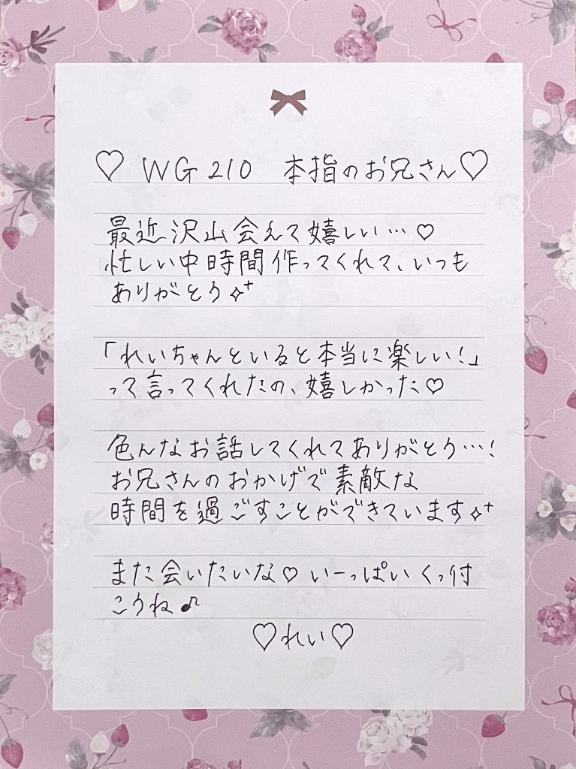 ♡ WG 210 本指のお兄さん♡
最近沢山会えて嬉しい…♡
忙しい中時間作ってくれて、いつも
ありがとう✧⁺
「れいちゃんといると本当に楽しい!」
って言ってくれたの、嬉しかった♡
色んなお話してくれてありがとう…!
お兄さんのおかげで素敵な
時間を過ごすことができています✧⁺
また会いたいな♡いーっぱいくっ付
こうね♪
♡れい♡